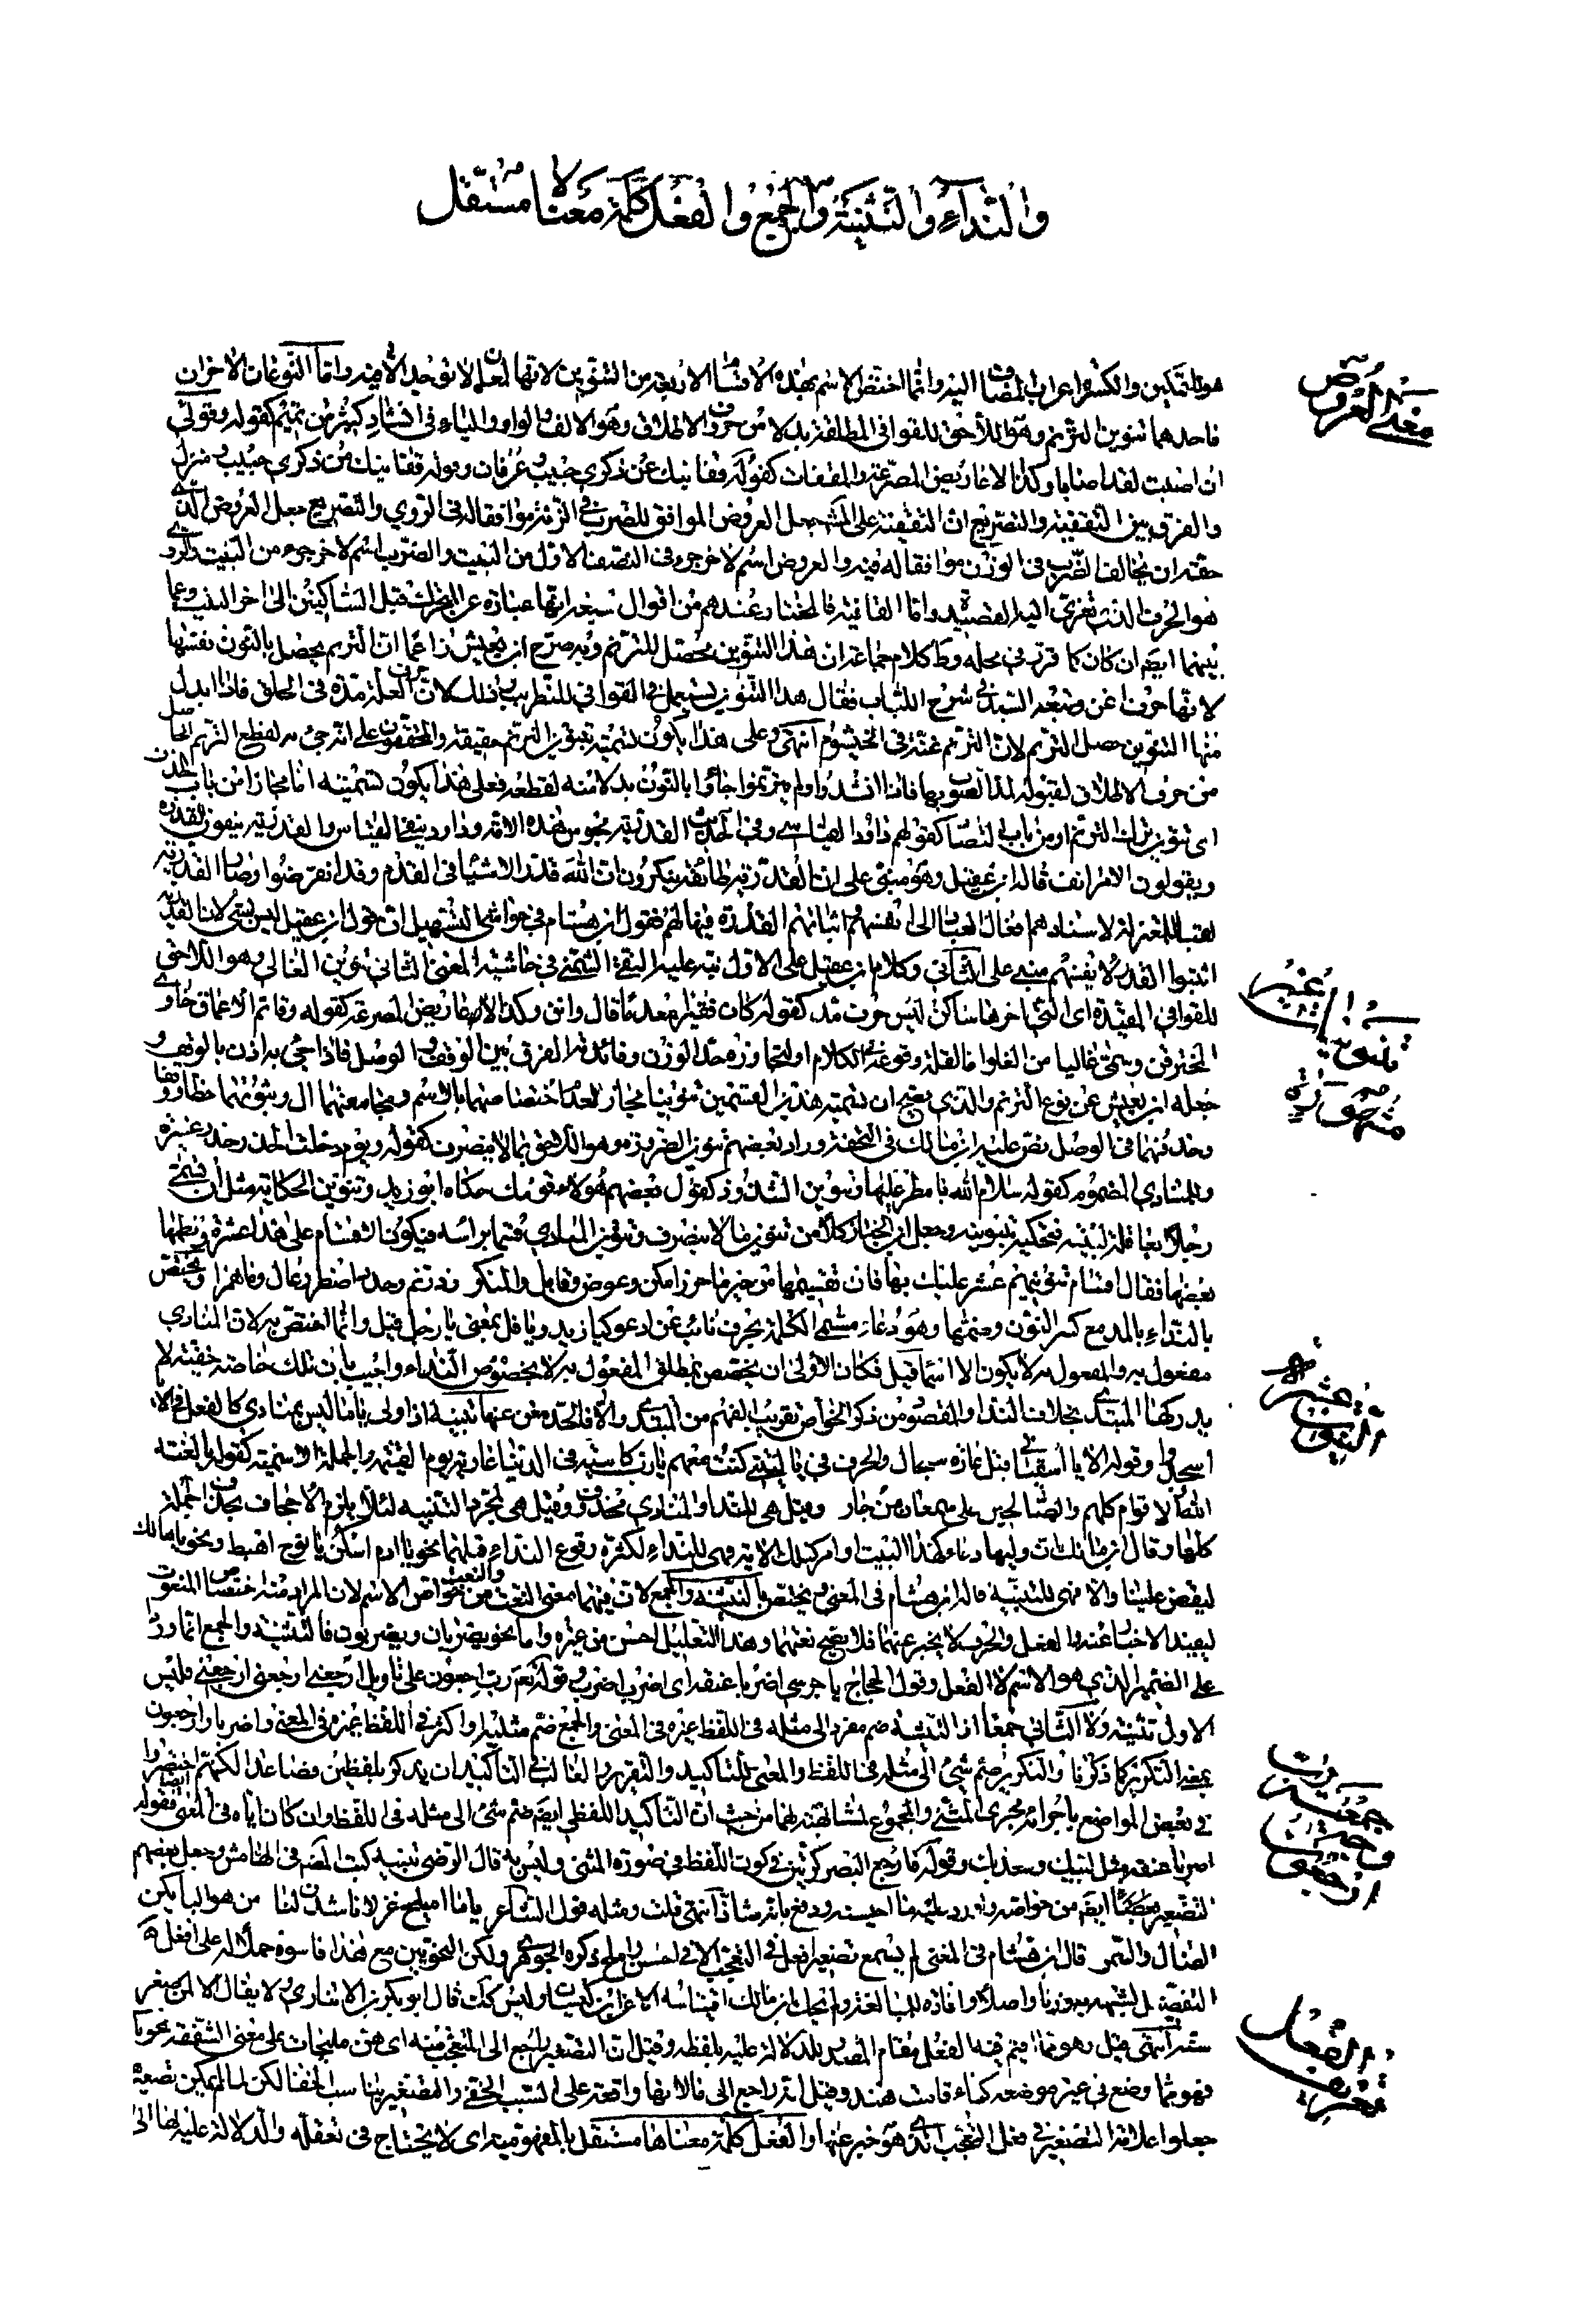 والنداء والتثنية والجمع والفعل كلمة معناها مستقل
هو للتمكين والكسر اعراب المضاف اليه وانما اختص الاسم بهذه الاقسام الاربعة من التنوين لانها لمعان لا توجد الا فيه واما النوعان الاخران
فاحدهما تنوين الترنم وهو اللاحق للقوافي المطلقة بدلا من حروف الاطلاق وهو الالف والواو والياء في انشاد كثير من تميم كقوله وقولي
ان اصبت لقد اصابا وكذا الاعاريض المصرعة والمقفات كقوله قفا نبك من ذكرى حبيب وعرفان وقوله قفا نبك من ذكرى حبيب ومنزل
والفرق بين التقفية والتصريع ان التقفية على المشهور جعل العروض الموافق للضرب في الزنة موافقا له في الروي والتصريع جعل العروض الذي
حقه ان يخالف الضرب في الوزن موافقا له فيه والعروض اسم لاخر جزء في النصف الاول من البيت والضرب اسم لاخر جزء من البيت والروي
هو الحرف الذي تعزى اليه القصيدة واما القافية فالمختار عندهم من اقوال سبعة انها عبارة عن المحرك قبل الساكنين الى اخر البيت وعما
بينهما ايضا ان كان كما قرر في محله وظ كلام جماعة ان هذا التنوين محصل للترنم وبه صرح ابن يعيش زاعما ان الترنم يحصل بالنون نفسها
لانها حرف اغن وتبعه السيد في شرح اللباب فقال هذا التنوين يستعمل في القوافي للتطريب وذلك لان حرف العلة مدة في الحلق فاذا ابدل
منها التنوين حصل الترنم لان الترنم غنة في الخيشوم انتهى وعلى هذا يكون تسمية تنوين الترنم حقيقة والمحققون على انه جيء به لقطع الترنم الحاصل
من حرف الاطلاق لقبوله لمد الصوت بها فاذا انشدوا ولم يترنموا جاؤا بالنون بدلا منه لقطعه فعلى هذا يكون تسميته اما مجازا من باب الحذف
اي تنوين ترك الترنم او من باب التضاد كقولهم داود القياسي وفي الحديث القدرية مجوس هذه الامة وداود ينفي القياس والقدرية ينفون القدر
ويقولون الامر انف قاله ابن عقيل وهو مبني على ان القدرية طائفة ينكرون ان الله قدر الاشياء في القدم وقد انقرضوا وصار القدرية
لقبا للمعتزلة لاسنادهم افعال العباد الى انفسهم واثباتهم القدرة فيها لهم فقول ابن هشام في حواشي التسهيل ان قول ابن عقيل ليس بشيء لان القدرية
اثبتوا القدر لانفسهم مبني على الثاني وكلام ابن عقيل على الاول نبه عليه التقي الشمني في حاشية المغني الثاني تنوين الغالي وهو اللاحق
للقوافي المقيدة اي التي اخرها ساكن ليس حرف مد كقوله كان فقيرا معدما قال وانن وكذا الاعاريض المصرعة كقوله وقاتم الاعماق خاوي
المخترقن وسمي غاليا من الغلو اما لقلة وقوعه في الكلام او لتجاوزه حد الوزن وفائدته الفرق بين الوقف والوصل فاذا جيء به اذن بالوقف و
جعله ابن يعيش من نوع الترنم والذي يتجه ان تسمية هذين القسمين تنوينا مجاز لعدم اختصاصهما بالاسم ومجامعتهما ال وثبوتهما خطا ووقفا
وحذفهما في الوصل نص عليه ابن مالك في التحفة وزاد بعضهم تنوين الضرورة وهو اللاحق بما لا ينصرف كقوله ويوم دخلت الخدر خدر عنيزة
وللمنادي المضموم كقوله سلام الله يا مطر عليها وتنوين الشذوذ كقول بعضهم هؤلاء قومك حكاه ابو زيد وتنوين الحكاية مثل ان تسمي
رجلا بعاقلة لبيبة فتحكيه بتنوينه وجعل ابن الخباز كلا من تنوين ما لا ينصرف وتنوين المنادي قسما براسه فيكون الاقسام على هذا عشرة ونظمها
بعضهم فقال اقسام تنوينهم عشر عليك بها فان تقسيمها من خير ما حرزا مكن وعوض وقابل والمنكر زد ورنم وحك اضطرر غال وما همزا ويختص
بالنداء بالمد مع كسر النون وضمها وهو دعاء مسمى الكلمة بحرف نائب عن ادعو كيا زيد ويا فل بمعنى يا رجل قيل وانما اختص به لان المنادي
مفعول به والمفعول به لا يكون الا اسما قيل فكان الاولى ان يختص بمطلق المفعول به لا بخصوص النداء واجيب بان تلك خاصة خفية لم
يدركها المبتدي بخلاف النداء والمقصود من ذكر الخواص تقريب الفهم من المبتدي والا فالحد مغن عنها تنبيه اذا ولى يا ما ليس بمنادي كالفعل في الا يا
اسجدوا وقوله الا يا اسقياني قبل غارة سنجال والحرف في يا ليتني كنت معهم يا رب كاسية في الدنيا عارية يوم القيمة والجملة الاسمية كقوله يا لعنة
الله والاقوام كلهم والصالحين على سمعان من جار وقيل هي للنداء والمنادي محذوف وقيل هي لمجرد التنبيه لئلا يلزم الاجحاف بحذف الجملة
كلها وقال ابن مالك ان وليها دعاء كهذا البيت او امر كتلك الاية فهي للنداء لكثرة وقوع النداء قبلهما نحو يا ادم اسكن يا نوح اهبط ونحو يا مالك
ليقض علينا والا فهي للتنبيه قاله ابن هشام في المغني ويختص بالتثنية والجمع لان فيهما معنى النعت والنعت من خواص الاسم لان المراد منه اختصاص المنعوت
ليفيد الاخبار عنه والفعل والحرف لا يخبر عنهما فلا يصح نعتهما وهذا التعليل احسن من غيره واما نحو يضربان ويضربون فالتثنية والجمع انما ورد
على الضمير الذي هو الاسم لا الفعل وقول الحجاج يا حرسي اضربا عنقه اي اضرب اضرب وقوله تعم رب ارجعون على تاويل ارجعني ارجعني ارجعني فليس
الاول تثنية ولا الثاني جمعا اذ التثنية ضم مفرد الى مثله في اللفظ غيره في المعنى والجمع ضم مثليه او اكثر في اللفظ غيره في المعنى واضربا وارجعون
بمعنى التكرير كما ذكرنا والتكرير ضم شيء الى مثله في اللفظ والمعنى للتاكيد والتقرير والغالب في التاكيد ان يذكر بلفظين فصاعدا لكنهم اختصروا
في بعض المواضع باجرائه مجرى المثنى والمجموع لمشابهته لهما من حيث ان التاكيد اللفظي ايضا ضم شيء الى مثله في اللفظ وان كان اياه في المعنى فقوله
اضربا عنقه مثل لبيك وسعديك وقوله فارجع البصر كرتين في كون اللفظ في صورة المثنى وليس به قال الرضي تنبيه كتب المص في الهامش وجعل بعضهم
التصغير ايضا من خواصه واورد عليه ما احيسنه ودفع بانه شاذ انتهى قلت ومثله قول الشاعر ياما اميلح غزلانا شدن لنا من هوليائكن
الضال والسمر قال ابن هشام في المغني لم يسمع تصغير افعل في التعجب الا في احسن واملح ذكره الجوهري ولكن النحويين مع هذا قاسوه حملا له على افعل
التفضيل لشبهه به وزنا واصلا وافادة للمبالغة ولم يحك ابن مالك اقتياسه الا عن ابن كيسان وليس كذلك قال ابو بكر بن الانباري ولا يقال الا لمن صغر
سنه انتهى قيل وهو مما اقيم فيه الفعل مقام المصدر للدلالة عليه بلفظه وقيل ان التصغير راجع الى المتعجب منه اي هن مليحات على معنى الشفقة نحو يا
فهو مما وضع في غير موضعه كتاء قامت هند وقيل انه راجع الى ما لانها واقعة على السبب الخفي والتصغير يناسب الخفاء لكن لما لم يمكن تصغيرها
جعلوا علامة التصغير في فعل التعجب الذي هو خبر عنها والفعل كلمة معناها مستقل بالمفهومية اي لا يحتاج في تعقله والدلالة عليه بها الى
معنى العروض